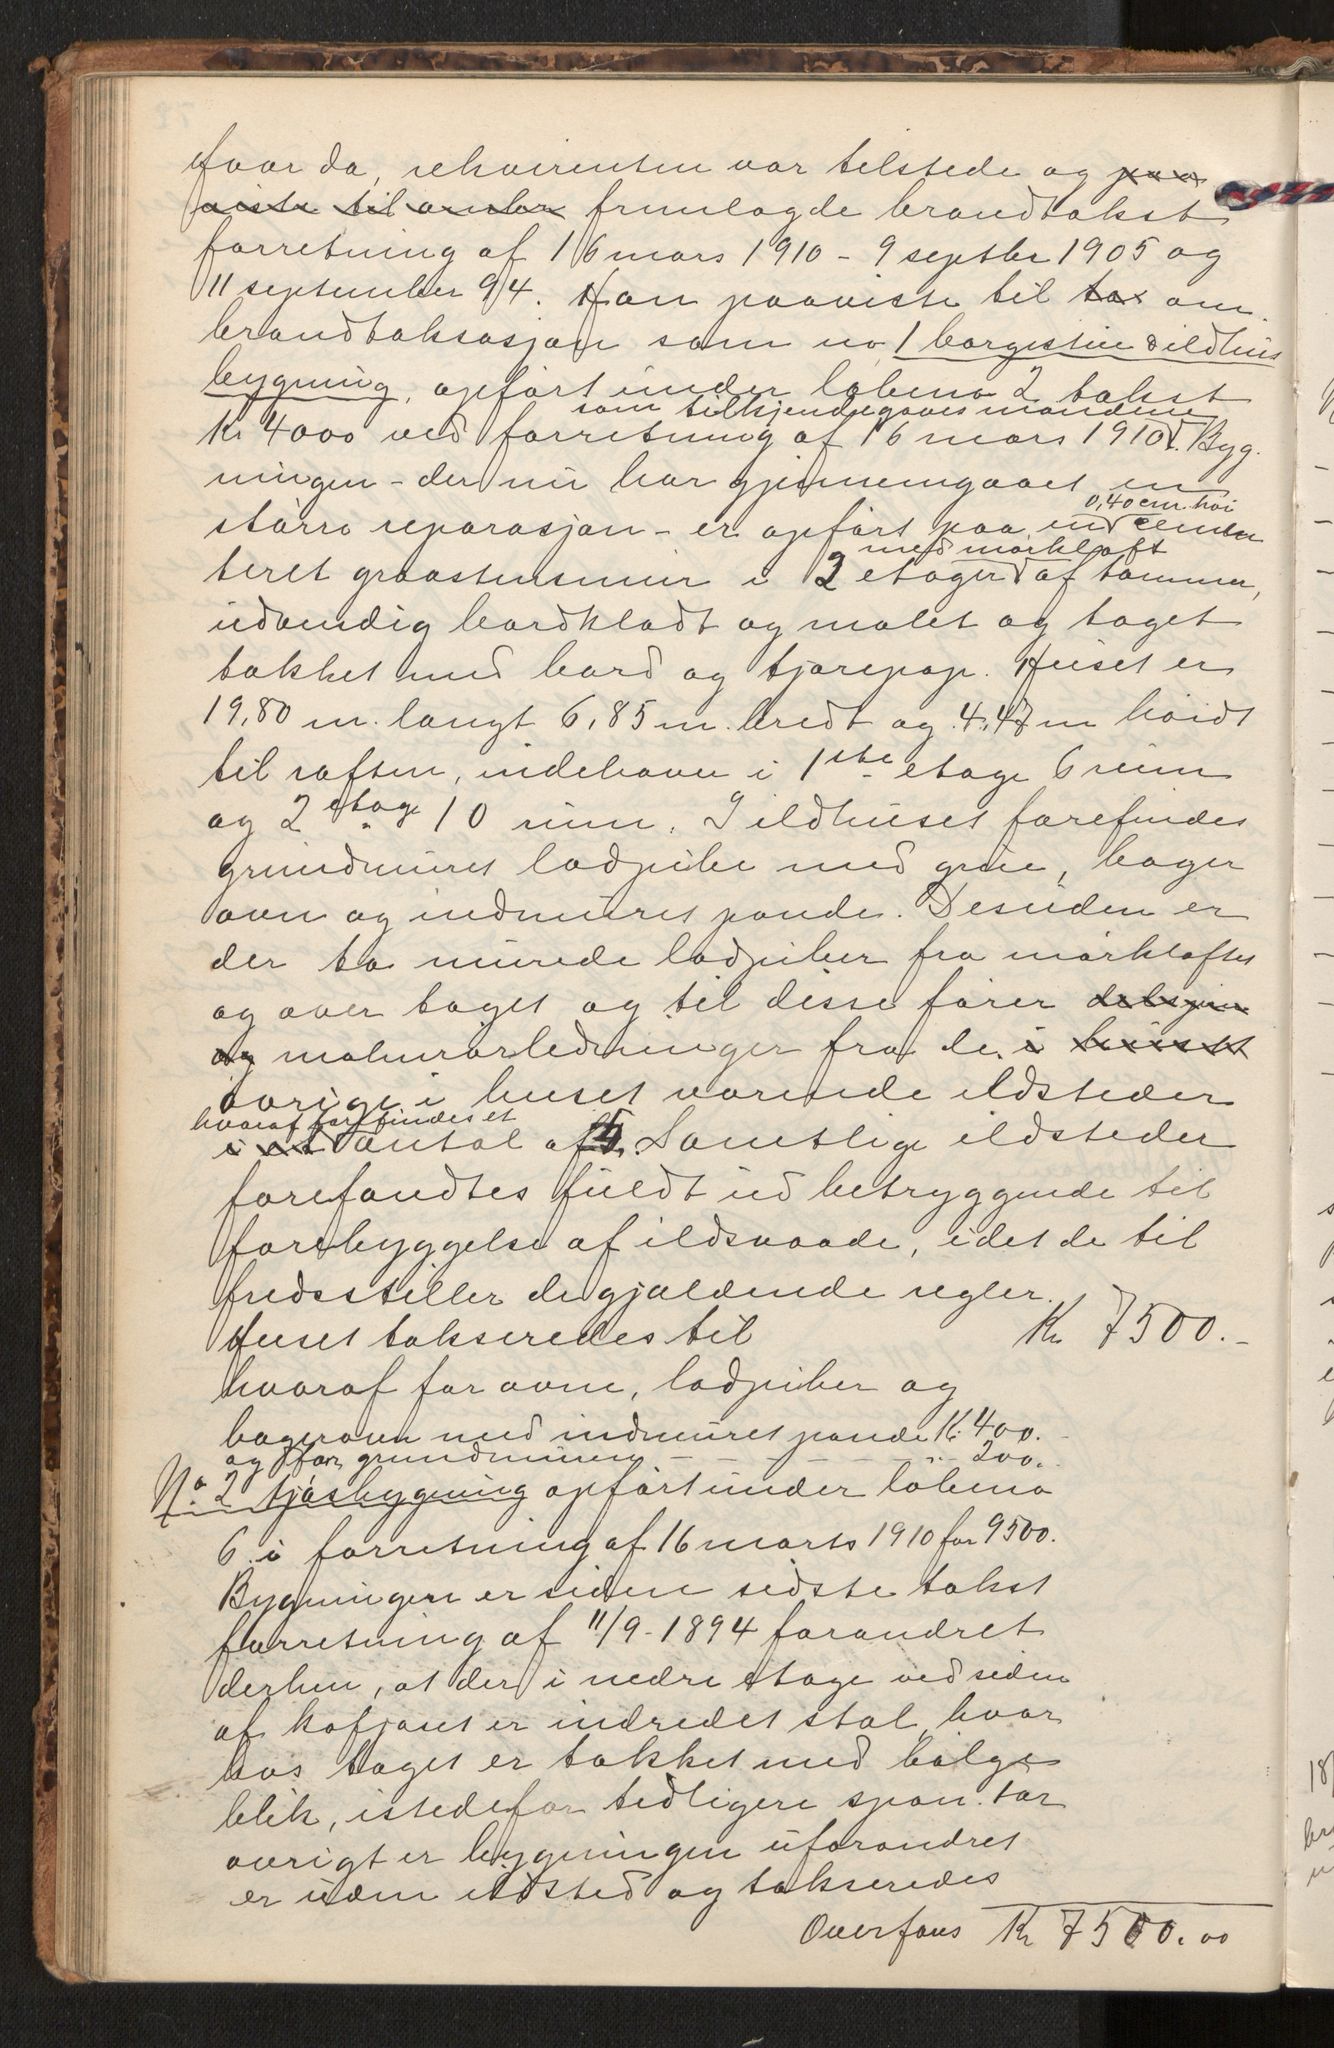 hvor da rekvirenten var tilstede og paa
viste til om fremlagde brandtakst
forretning af 16 mars 1910 - 9 septbr 1905 og
11 september 94. Han paaviste til tax om
brandtaksasjon som no 1 borgestue & ildhus
bygning, opført under løbeno 2 takst
som tilkjendegaves mændene
Kr 4000 ved forretning af 16 mars 1910. Byg-
ningen - der nu har gjennemgaaet en
0,40 cm. høi
større reparasjon - er opført paa en cemen
med mørkloft
teret graastensmur i 2 etager af tømmer,
udvendig bordklædt og malet og taget
tækket med bord og tjærepap. Huset er
19,80 m. langt 6,85 m. bredt og 4,47 m høidt
til raften, indehaver i 1ste etage 6 rum
og 2 etage 10 rum. I ildhuset forefindes
grundmuret ladpibe med grue, bager
ovn og indmuret pande. Desuden er
der to murede ladpiber fra mørkloftet
og over taget og til disse fører
og malmrørledninger fra de i huset
øvrige i huset værende ildsteder
hvoraf forefindes et
i et antal af 5. Samtlige ildsteder
forefandtes fuldt ud betryggende til
forebyggelse af ildsvaade, idet de til
fredsstiller de gjældende regler.
Huset takseredes til Kr 7500.-
hvoraf for ovne, ladpiber og
bagerovn med indmuret pande Kr. 400.
og for grundmuren - - - - - - " 200.
No 2 fjøsbygning opført under løbeno
6 i forretning af 16 marts 1910 for 9500.
Bygningen er siden sidste takst
forretning af 11/9 - 1894 forandret
derhen, at der i nedre etage ved siden
af kofjøset er indredet stal, hvor
hos taget er tækket med bølge
blik, istedefor tidligere spon. For
øvrigt er bygningen uforandret
er uden ildsted og takseredes
Overføres Kr 7500.00